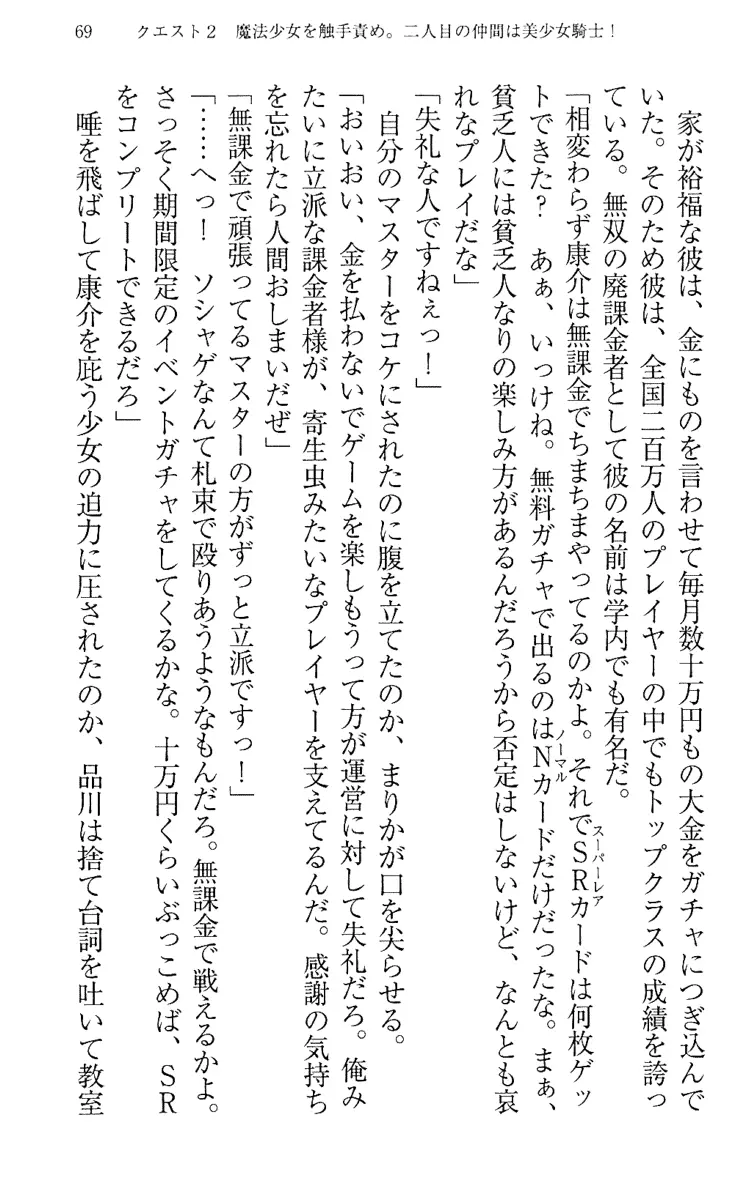 69　クエスト２　魔法少女を触手責め。二人目の仲間は美少女騎士！
　家が裕福な彼は、金にものを言わせて毎月数十万円もの大金をガチャにつぎ込んで
いた。そのため彼は、全国二百万人のプレイヤーの中でもトップクラスの成績を誇っ
ている。無双の廃課金者として彼の名前は学内でも有名だ。
「相変わらず康介は無課金でちまちまやってるのかよ。それでＳＲカードは何枚ゲッ
スーパーレア
トできた？　あぁ、いっけね。無料ガチャで出るのはＮカードだけだったな。まぁ、
ノーマル
貧乏人には貧乏人なりの楽しみ方があるんだろうから否定はしないけど、なんとも哀
れなプレイだな」
「失礼な人ですねぇっ！」
　自分のマスターをコケにされたのに腹を立てたのか、まりかが口を尖らせる。
「おいおい、金を払わないでゲームを楽しもうって方が運営に対して失礼だろ。俺み
たいに立派な課金者様が、寄生虫みたいなプレイヤーを支えてるんだ。感謝の気持ち
を忘れたら人間おしまいだぜ」
「無課金で頑張ってるマスターの方がずっと立派ですっ！」
「……へっ！　ソシャゲなんて札束で殴りあうようなもんだろ。無課金で戦えるかよ。
さっそく期間限定のイベントガチャをしてくるかな。十万円くらいぶっこめば、ＳＲ
をコンプリートできるだろ」
　唾を飛ばして康介を庇う少女の迫力に圧されたのか、品川は捨て台詞を吐いて教室